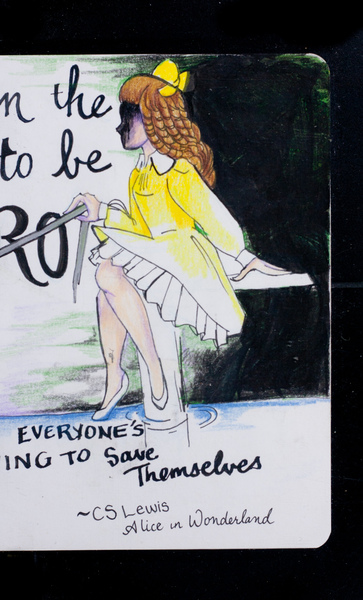 n the
to be
RO
EVERYONE'S
ING TO Save
Themselves
~CS Lewis
Alice in Wonderland